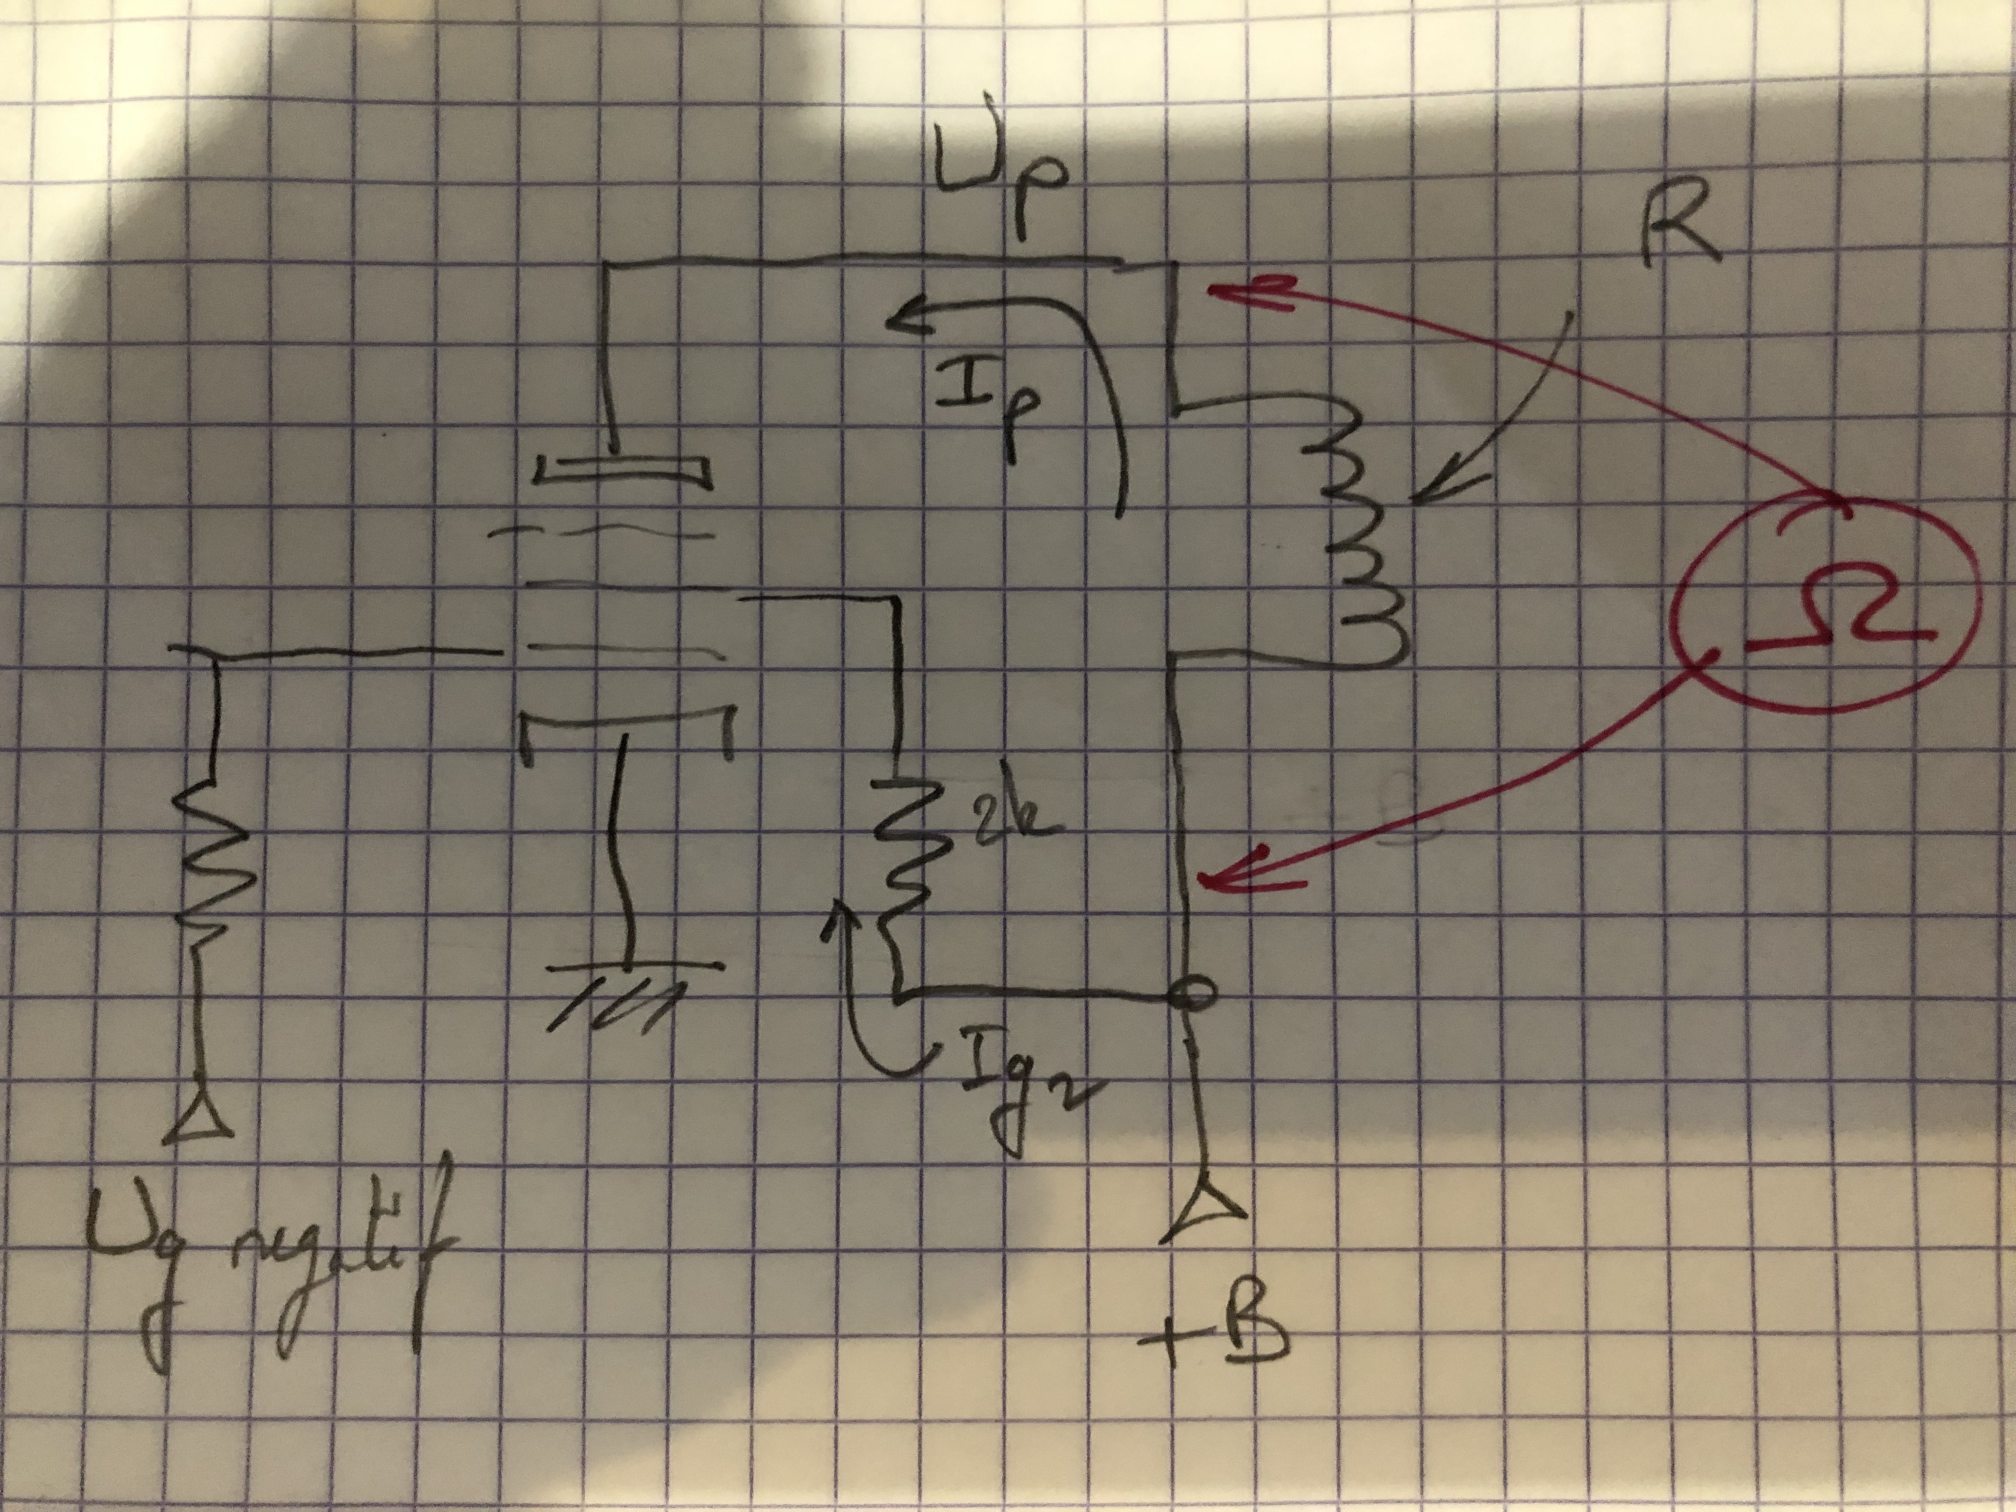 Up
R
Ip
Ω
2k
Ig2
Ug negatif
+B